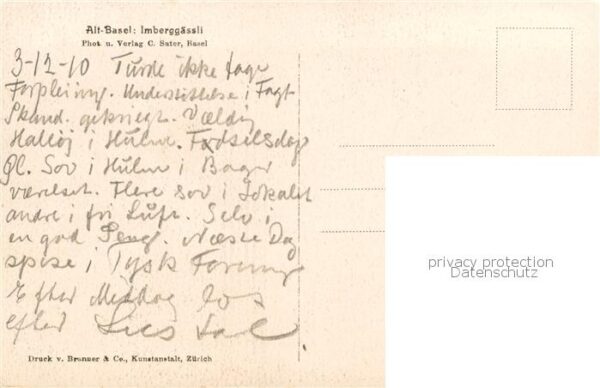 Alt-Basel: Imberggässli
Phot u. Verlag C. Suter, Basel
3-12-10 Turde ikke tage
Forpleining. Understøttelse i Fagt
Skand. gekriegt. Vældig
Halløj i Hulen. Fødselsdag
Gl. Sov i Hulen i Bager
værelset. Flere sov i Lokalet
andre i fri Luft. Selv i
en god Seng. Næste Dag
spise i Tysk Forening
Efter Middag los
efter Liestal.
Druck v. Bronner & Co., Kunstanstalt, Zürich
privacy protection
Datenschutz